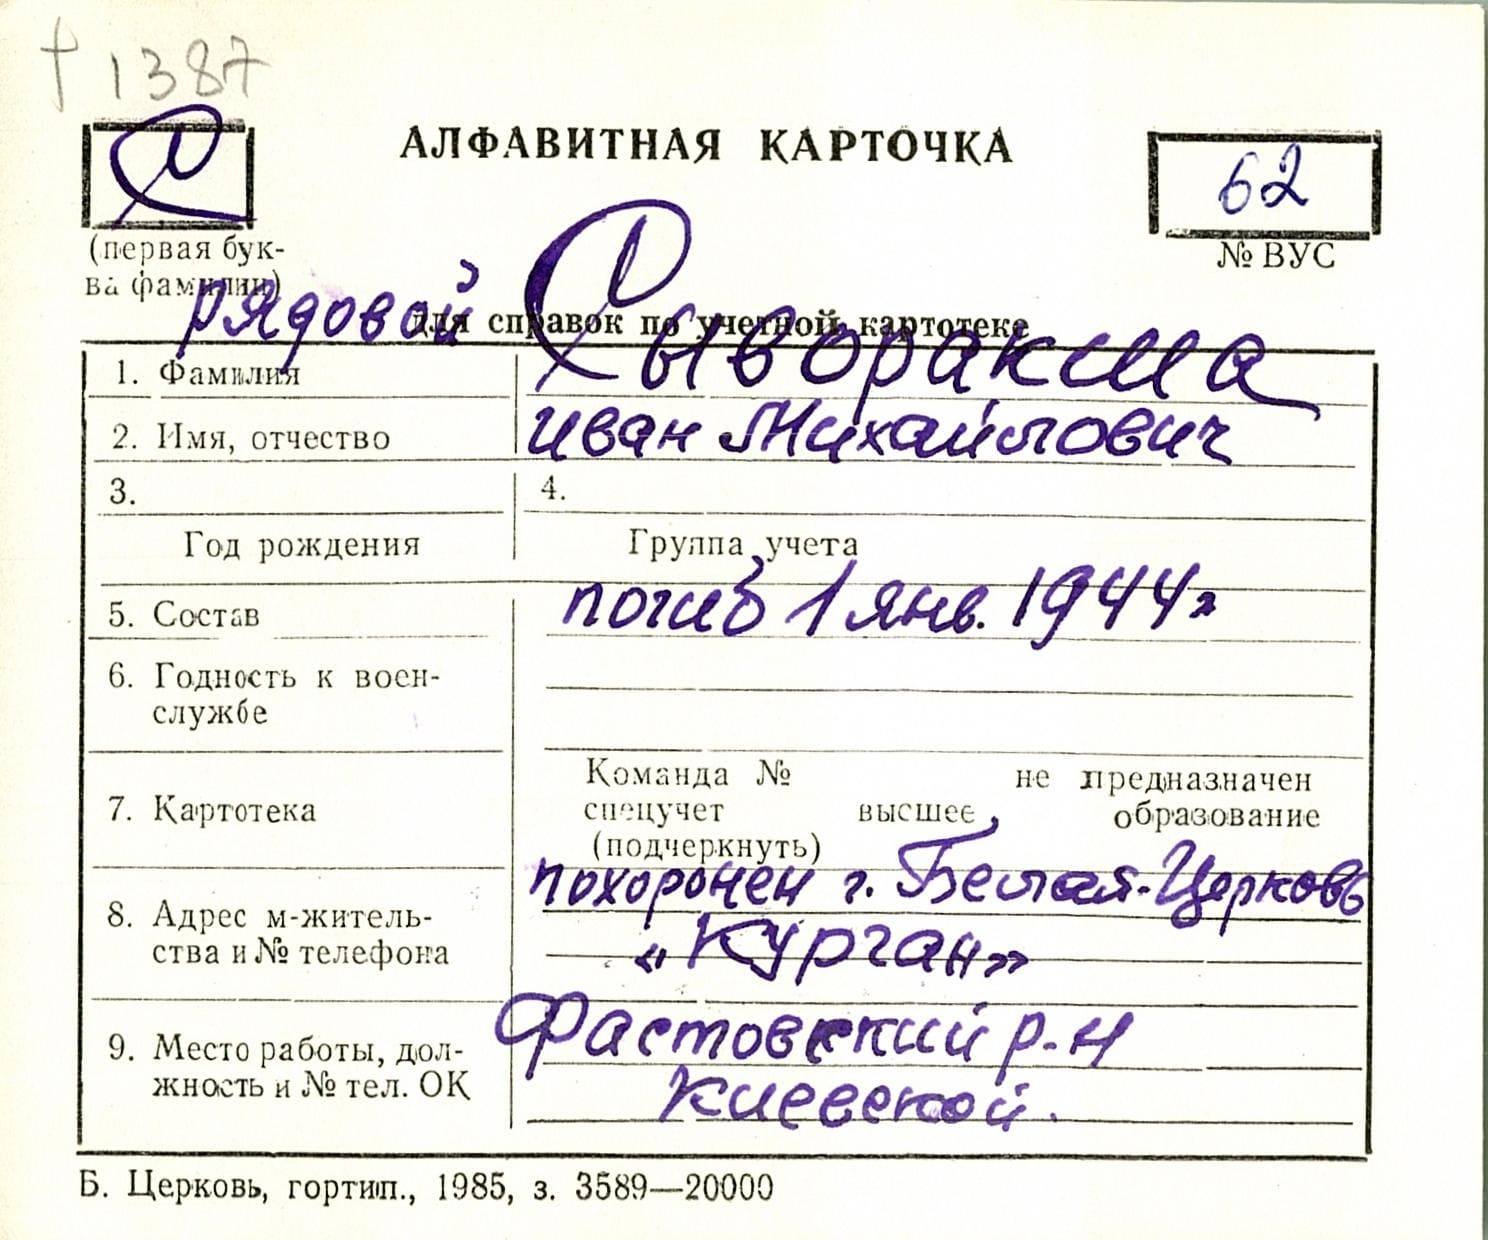 † 1387
С
АЛФАВИТНАЯ КАРТОЧКА
62
(первая бук-
ва фамилии)
№ ВУС
рядовой
для справок по учетной картотеке
1. Фамилия
Сыворакша
2. Имя, отчество
Иван Михайлович
3.
4.
Год рождения
Группа учета
5. Состав
погиб 1 янв. 1944г
6. Годность к воен-
службе
7. Картотека
Команда № не предназначен
спецучет высшее образование
(подчеркнуть)
8. Адрес м-житель-
ства и № телефона
похоронен г. Белая-Церковь
«Курган»
9. Место работы, дол-
жность и № тел. ОК
Фастовский р-н
Киевской.
Б. Церковь, гортип., 1985, з. 3589—20000